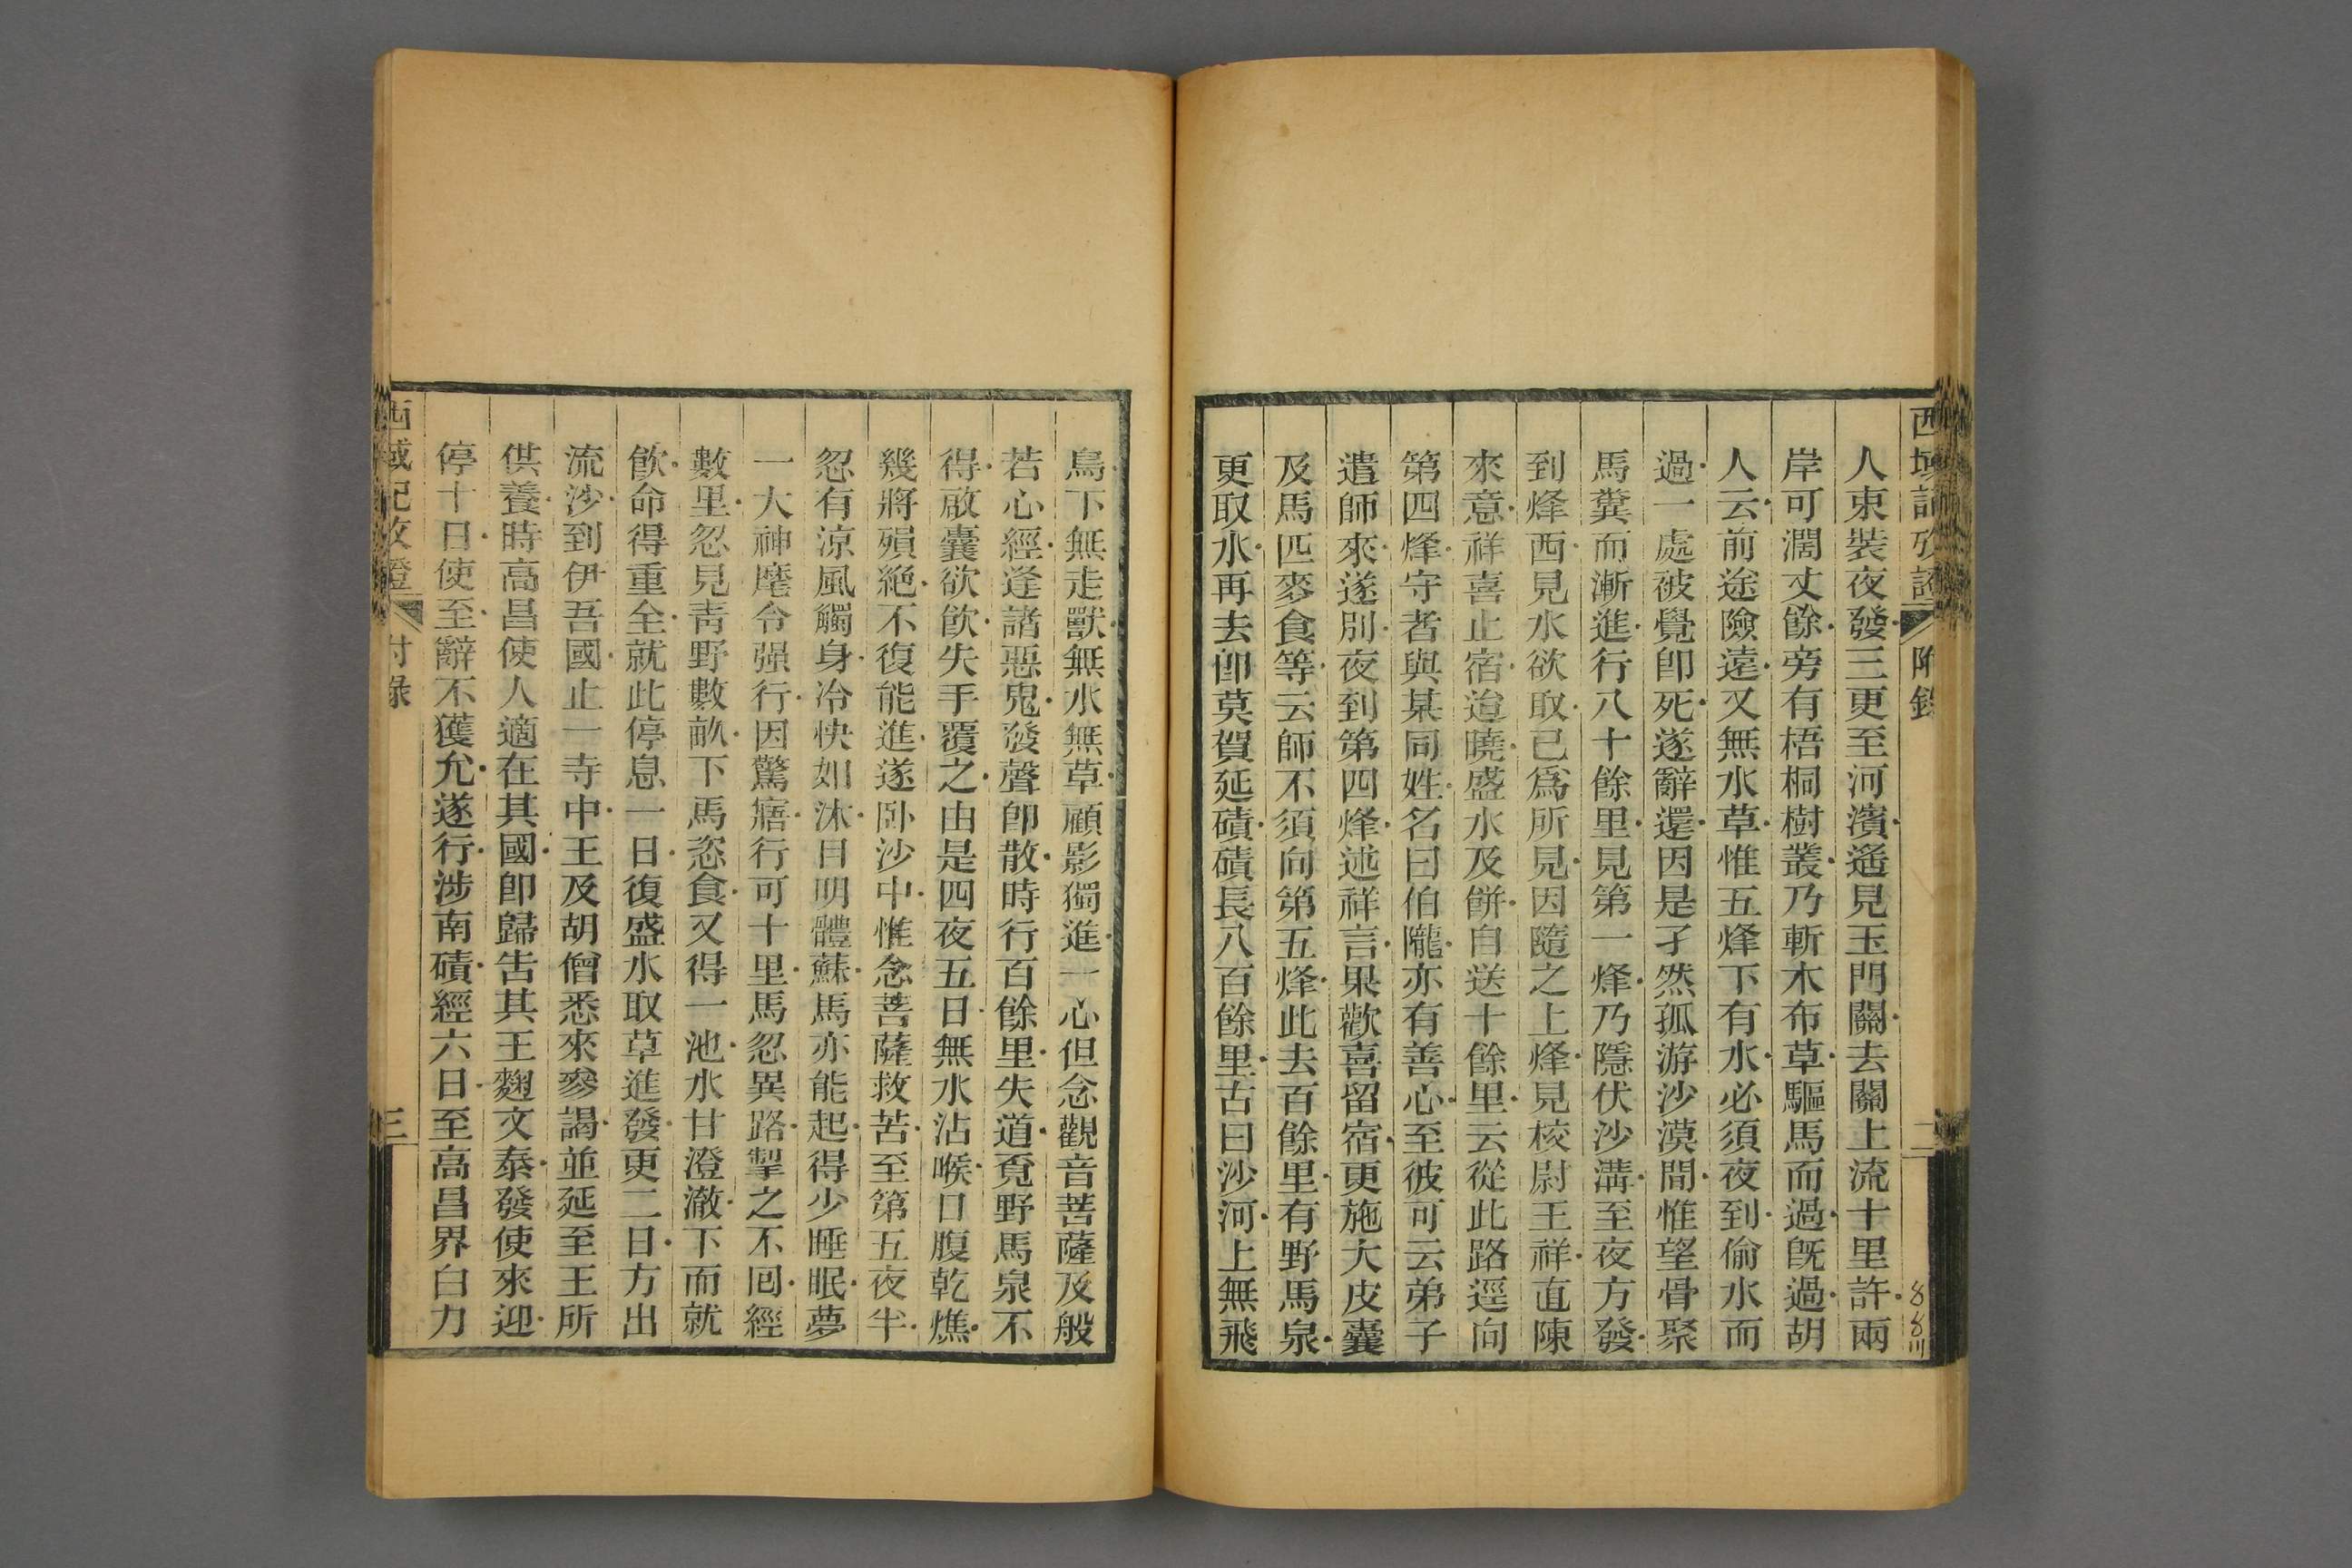 西域記攷證 附錄 二
人束裝夜發三更至河濱遙見玉門關去關上流十里許兩
岸可濶丈餘旁有梧桐樹叢乃斬木布草驅馬而過旣過胡
人云前途險遠又無水草惟五烽下有水必須夜到偷水而
過一處被覺卽死遂辭還因是孑然孤游沙漠間惟望骨聚
馬糞而漸進行八十餘里見第一烽乃隱伏沙溝至夜方發
到烽西見水欲取已爲所見因隨之上烽見校尉王祥直陳
來意祥喜止宿迨曉盛水及餅自送十餘里云從此路逕向
第四烽守者與某同姓名曰伯隴亦有善心至彼可云弟子
遣師來遂別夜到第四烽述祥言果歡喜留宿更施大皮囊
及馬匹麥食等云師不須向第五烽此去百餘里有野馬泉
更取水再去卽莫賀延磧磧長八百餘里古曰沙河上無飛
鳥下無走獸無水無草顧影獨進一心但念觀音菩薩及般
若心經逢諸惡鬼發聲卽散時行百餘里失道覓野馬泉不
得啟囊欲飮失手覆之由是四夜五日無水沾喉口腹乾燋
幾將殞絶不復能進遂臥沙中惟念菩薩救苦至第五夜半
忽有涼風觸身冷快如沐目明體蘇馬亦能起得少睡眠夢
一大神麾令强行因驚寤行可十里馬忽異路掣之不囘經
數里忽見靑野數畝下馬恣食又得一池水甘澄澈下而就
飮命得重全就此停息一日復盛水取草進發更二日方出
流沙到伊吾國止一寺中王及胡僧悉來參謁並延至王所
供養時高昌使人適在其國卽歸告其王麴文泰發使來迎
停十日使至辭不獲允遂行涉南磧經六日至高昌界白力
西域記攷證 附錄 三